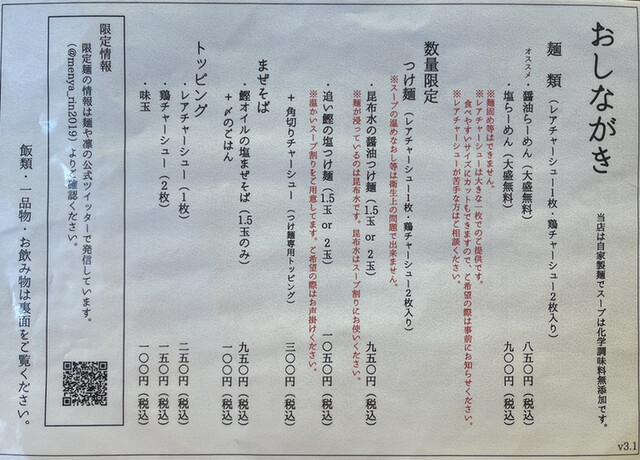 おしながき
当店は自家製麺でスープは化学調味料無添加です。
麺 類 (レアチャーシュー1枚・鶏チャーシュー2枚入り)
オススメ
・醤油らーめん (大盛無料) 八五〇円 (税込)
・塩らーめん (大盛無料) 九〇〇円 (税込)
※麺固め等はできません。
※レアチャーシューは大きな一枚でのご提供です。
食べやすいサイズにカットもできますので、ご希望の際は事前にお知らせください。
※レアチャーシューが苦手な方はご相談ください。
数量限定
つけ麺 (レアチャーシュー1枚・鶏チャーシュー2枚入り)
※スープの温めなおし等は衛生上の問題で出来ません。
・昆布水の醤油つけ麺 (1.5玉 or 2玉) 九五〇円 (税込)
※麺が浸っているのは昆布水です。昆布水はスープ割りにお使いください。
・追い鰹の塩つけ麺 (1.5玉 or 2玉) 一〇五〇円 (税込)
※温かいスープ割りをご用意してます。ご希望の際はお声掛けください。
+ 角切りチャーシュー (つけ麺専用トッピング) 三〇〇円 (税込)
まぜそば
・鰹オイルの塩まぜそば (1.5玉のみ) 九五〇円 (税込)
+ 〆のごはん 一〇〇円 (税込)
トッピング
・レアチャーシュー (1枚) 二五〇円 (税込)
・鶏チャーシュー (2枚) 一五〇円 (税込)
・味玉 一〇〇円 (税込)
限定情報
限定麺の情報は麺や凛の公式ツイッターで発信しています。
(@menya_rin2019) よりご確認ください。
飯類・一品物・お飲み物は裏面をご覧ください。
v3.1